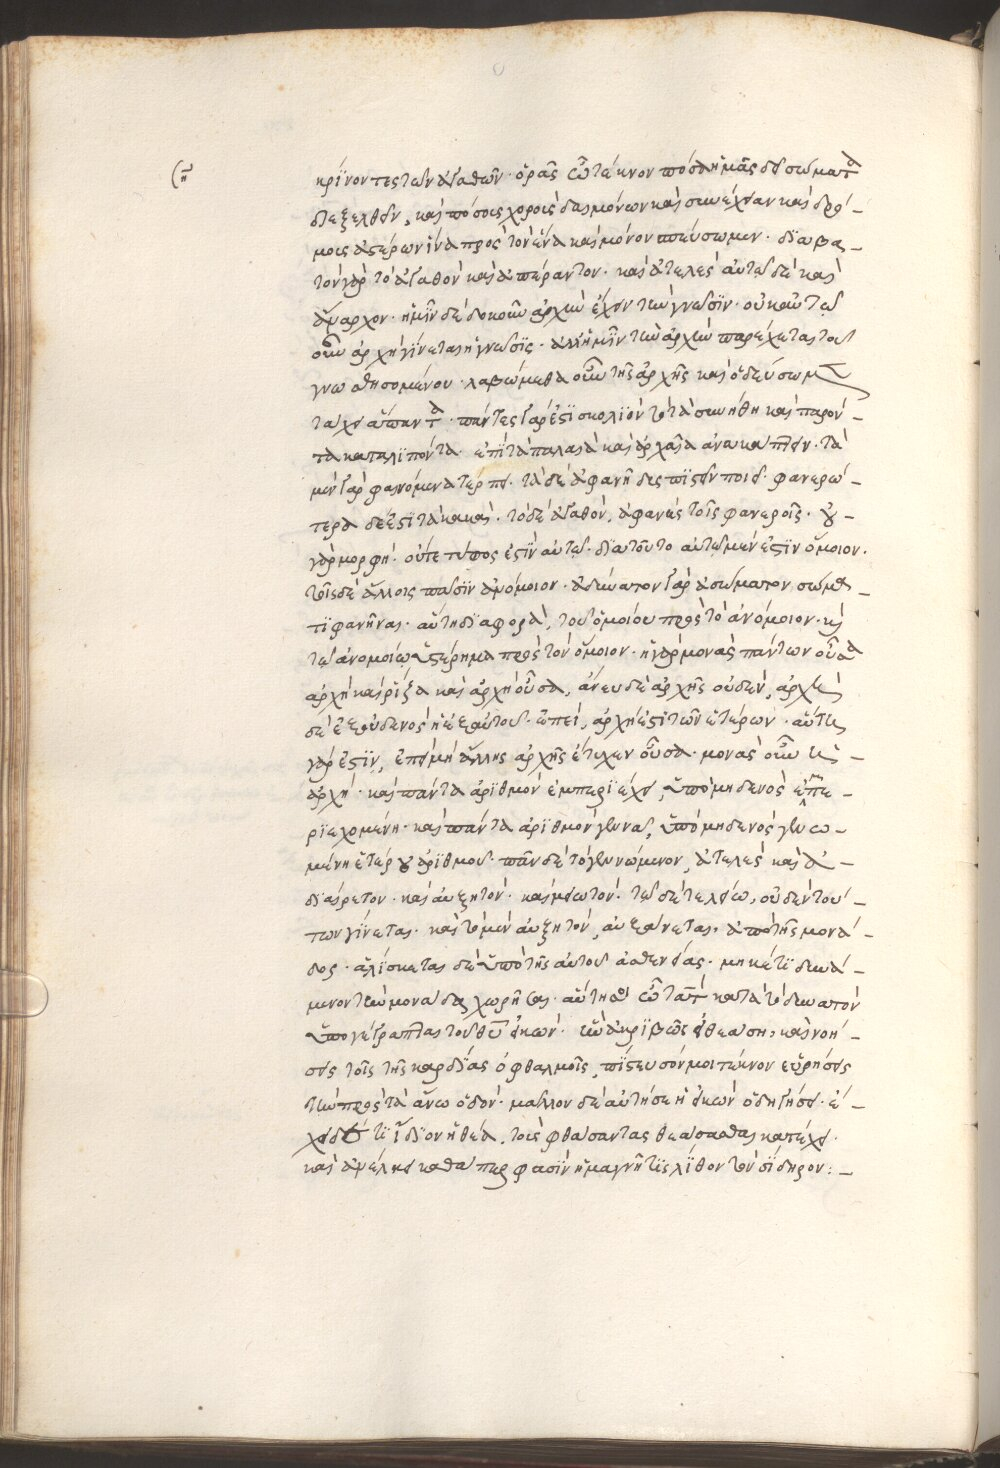 κρίνοντες τῶν ἀγαθῶν· ὁρᾶς ὦ τέκνον πόσα ἡμᾶς δεῖ σώματα
διεξελθεῖν, καὶ πόσοις χοροῖς δαιμόνων καὶ συνέχειαν καὶ δρό-
μοις ἀστέρων ἵνα πρὸς τὸν ἕνα καὶ μόνον σπεύσωμεν· διαβα-
τὸν γὰρ τὸ ἀγαθὸν καὶ ἀπέραντον· καὶ ἀτελὲς αὐτῶ δὲ καὶ
ἄναρχον· ἡμῖν δὲ δοκοῦν ἀρχὴν ἔχειν τὴν γνῶσϊν· οὐκ αὐτῶ
οὖν ἀρχὴ γίνεται ἡ γνῶσϊς· ἀλλ' ἡμῖν τὴν ἀρχὴν παρέχεται τοῦ
γνωσθησομένου· λαβώμεθα οὖν τῆς ἀρχῆς καὶ ὁδεύσωμεν
τάχει ἅπαντα· πάντες γάρ ἐστϊ σκολϊὸν τὸ τὰ συνήθη καὶ παρόν-
τα καταλϊπόντα· ἐπὶ τὰ παλαιὰ καὶ ἀρχαῖα ἀνακάπτειν· τὰ
μὲν γὰρ φαινόμενα τέρπει· τὰ δὲ ἀφανῆ δυσπιστεῖν ποιεῖ· φανερώ-
τερα δέ ἐστι τὰ κακά· τὸ δὲ ἀγαθὸν, ἀφανὲς τοῖς φανεροῖς· οὐ
γὰρ μορφὴ· οὔτε τύπος ἐστὶν αὐτῶ· διὰ τοῦτο αὐτῶ μέν ἐστϊν ὅμοιον·
τοῖς δὲ ἄλλοις πᾶσϊν ἀνόμοιον· ἀδύνατον γὰρ ἀσώματον σώμα-
τϊ φανῆναι· αὕτη διαφορὰ, τοῦ ὁμοίου πρὸς τὸ ἀνόμοιον· καὶ
τῶ ἀνομοίω ὑστέρημα πρὸς τὸν ὅμοιον· ἡ γὰρ μονὰς πάντων οὖσα
ἀρχὴ καὶ ῥίζα καὶ ἀρχὴ οὖσα, ἄνευ δὲ ἀρχῆς οὐδὲν, ἀρχὴ
δὲ ἐξ οὐδενὸς ἢ ἐξ αὑτοῦ· ἐπεὶ, ἀρχή ἐστι τῶν ἑτέρων· αὕτη
γάρ ἐστϊν, ἐπεὶ μὴ ἄλλης ἀρχῆς ἔτυχεν οὖσα· μονὰς οὖν ἡ
ἀρχή· καὶ πάντα ἀρϊθμὸν ἐμπερϊέχει, ὑπὸ μηδενὸς ἐμπε-
ρϊεχομένη· καὶ πάντα ἀρϊθμὸν γεννᾶ, ὑπὸ μηδενὸς γεννω-
μένη ἑτέρου ἀρϊθμοῦ· πᾶν δὲ τὸ γεννώμενον, ἀτελὲς καὶ ἀ-
δϊαίρετον· καὶ αὐξητόν· καὶ μειωτόν· τῶ δὲ τελείω, οὐδὲν τού-
των γίνεται· καὶ τὸ μὲν αὐξητὸν, αὐξάνεται, ἀπὸ τῆς μονά-
δος· ἁλίσκεται δὲ ὑπὸ τῆς αὐτοῦ ἀσθενείας· μηκέτϊ δυνά-
μενον τὴν μονάδα χωρῆσαι· αὕτη σοι ὦ τὰτ κατὰ τὸ δυνατὸν
ὑπογέγραπται τοῦ θεοῦ εἰκών· ἣν ἀκρϊβῶς εἰ θεάση, καὶ νοή-
σεις τοῖς τῆς καρδίας ὀφθαλμοῖς, πίστευσόν μοι τέκνον εὑρήσεις
τὴν πρὸς τὰ ἄνω ὁδόν· μᾶλλον δὲ αὐτή σε ἡ εἰκὼν ὁδηγήσει· ἔ-
χει δέ τϊ ἴδϊον ἡ θέα, τοὺς φθάσαντας θεάσασθαι κατέχει·
καὶ ἀνέλκει καθάπερ φασϊν ἡ μαγνῆτϊς λίθον τὸν σίδηρον:-